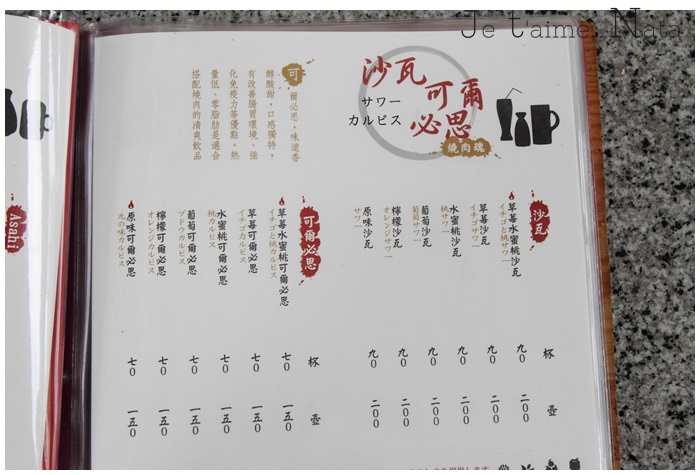 Je t'aime, Nata
沙瓦
可爾
必思
サワー
カルピス
燒肉魂
可爾必思，味道香
醇酸甜，口感獨特，
有改善腸胃環境、強
化免疫力等優點。熱
量低、零脂肪是適合
搭配燒肉的清爽飲品
沙瓦 杯 壺
草莓水蜜桃沙瓦 九0 二00
イチゴと桃サワー
草莓沙瓦 九0 二00
イチゴサワー
水蜜桃沙瓦 九0 二00
桃サワー
葡萄沙瓦 九0 二00
葡萄サワー
檸檬沙瓦 九0 二00
オレンジサワー
原味沙瓦 九0 二00
サワー
可爾必思 杯 壺
草莓水蜜桃可爾必思 七0 一五0
イチゴと桃カルピス
草莓可爾必思 七0 一五0
イチゴカルピス
水蜜桃可爾必思 七0 一五0
桃カルピス
葡萄可爾必思 七0 一五0
ブドウカルピス
檸檬可爾必思 七0 一五0
オレンジカルピス
原味可爾必思 七0 一五0
元の味カルピス
Asahi